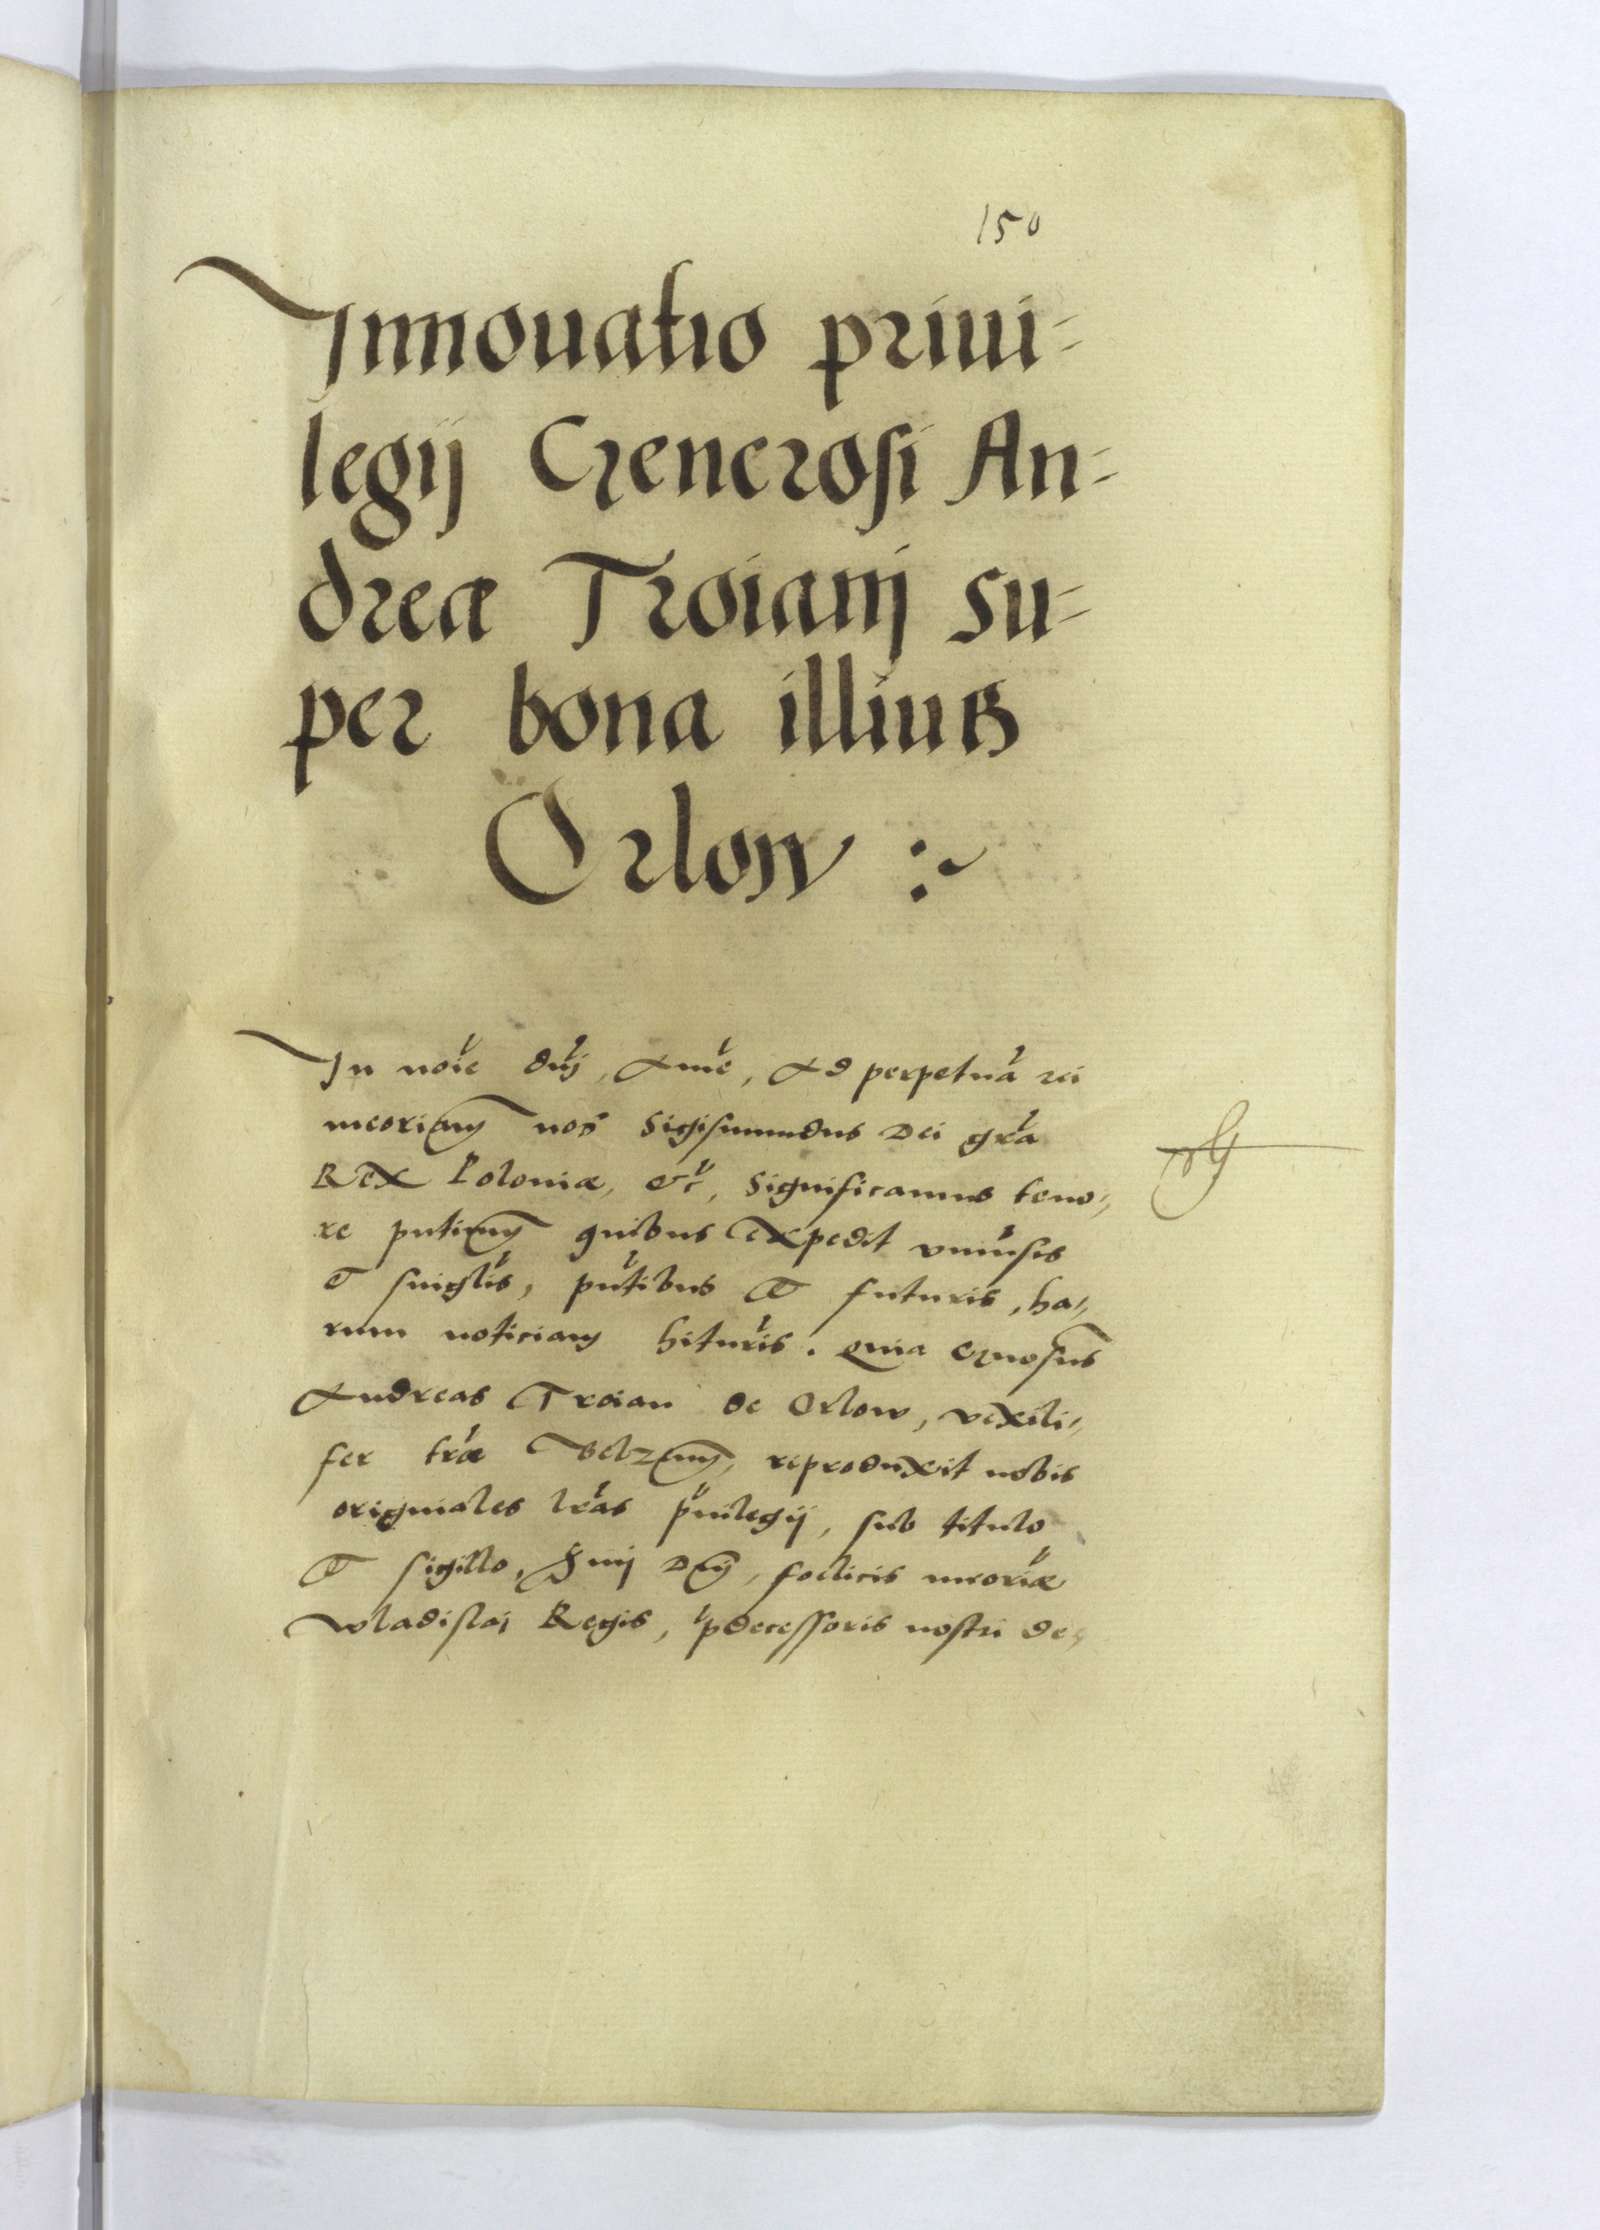 150
Innouatio priui-
legij Generosi An-
dreæ Troianj su-
per bona illius
Orlow :~
In noie dnj, Ame, Ad perpetua rei
meoriam nos Sigismundus Dei gra
Rex Poloniæ, etc, Significamus teno-
re pntium quibus expedit vniusis
et singlis, pntibus et futuris, ha-
rum noticiam hituris. Quia Gnosus
Andreas Troian de Orlow, vexili-
fer træ Belzen, reproduxit nobis
originales lras priuilegij, sub titulo
et sigillo, Smi Dnj, foelicis meoriæ
Wladislaj Regis, pdecessoris nostri de